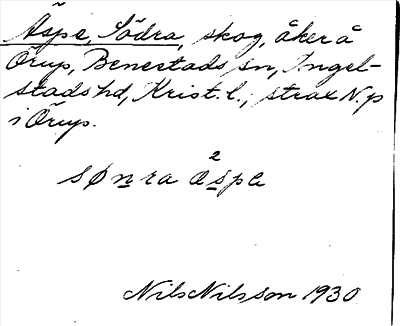 Äspe, Södra, skog, åker å
Örup, Benestads sn, Ingel-
stads hd, Krist. l.; strax N. p
i Örup.
sønra æ²spa
Nils Nilsson 1930